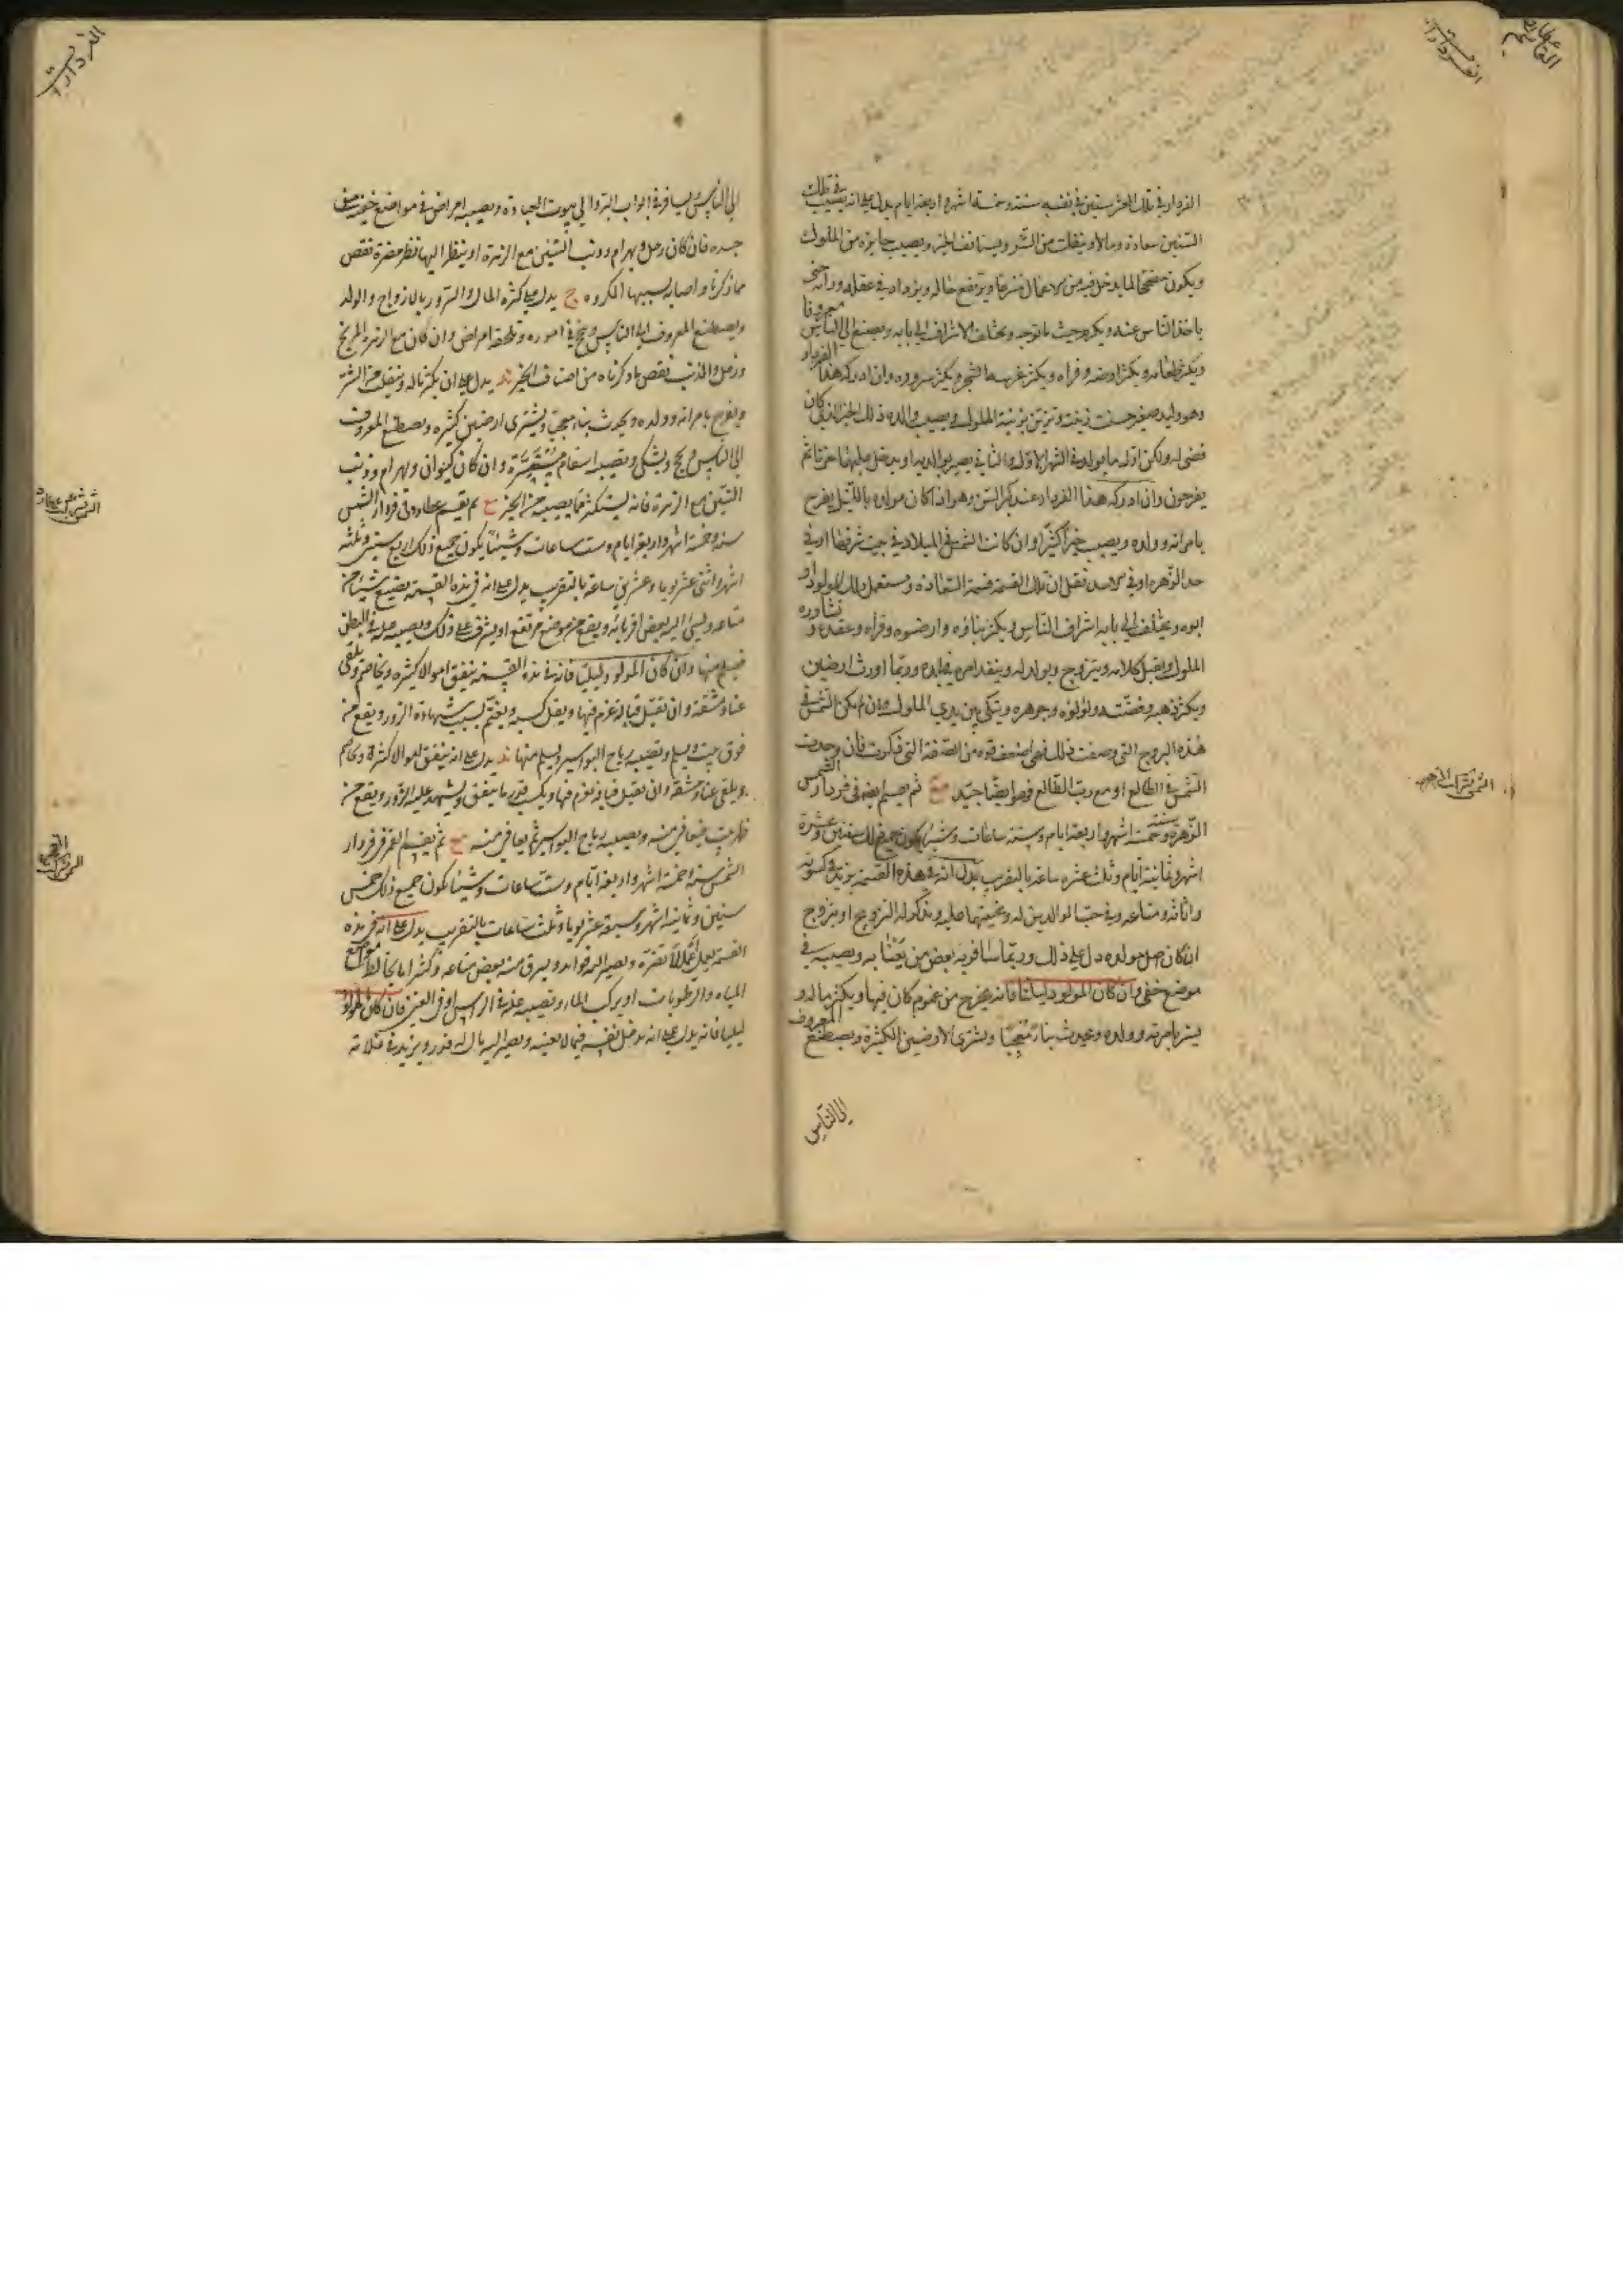 الفردار في تلك العشر سنين في نفسه سنة وخمسة اشهر واربعة ايام يدل على انه يصيب في تلك
السنين سعادة ومالا وينفلت من الشر ويستانف الخير ويصيب جايزة من الملوك
ويكون منجحا لما يدخل فيه من الاعمال فيرتفع حاله ويزداد في عقله ورايه حتى
ياخذ الناس عنه ويكرم حيث ما توجه ويختلف الاشراف الى بابه ويصنع الى الناس معروفا
ويكثر طعامه ويكثر ارضه وقراه ويكثر غرسه الشجر ويكثر سروره وان ادركه هذا الفردار
وهو وليد صغير حسنت زينته وتزين بزينة الملوك ويصيب والده ذلك الخير الذي كان
قضى له ولكن اوله ما يولد في الشهر الاول والثاني يصير بوالديه او يدخل عليهما حزنا ثم
يفرحون وان ادركه هذا الفردار عند كبر السن وهو اذا كان مولده بالليل يفرح
بامراته وولده ويصيب خيرا كثيرا وان كانت الشمس في الميلاد في بيت شرفها او في
حد الزهرة او في الاسد نقل ان تلك القسمة قسمة السعادة وستعمل ذلك المولود او
ابوه ويختلف الى بابه اشراف الناس ويكثر بناؤه وارضوه وقراه وعقده وتشاوره
الملوك ويقبل كلامه ويتزوج ويولد له وينفذ امره في بلده وربما اورث ارضين
ويكثر ذهبه وفضته ولؤلؤه وجوهره ويتكى بين يدي الملوك وان لم يكن الشمس في
هذه البروج التي وصفت ذلك فهي اضعف قوة من الصفة التي ذكرت فان وجدت
الشمس في الطالع او مع رب الطالع فهو ايضا جيد ثم يقسم ايضا في فردار الشمس
الزهرة سنة وخمسة اشهر واربعة ايام وستة ساعات وشيئا يكون جميع ذلك سنتين وعشرة
اشهر وثمانية ايام وثلث عشره ساعة بالتقريب يدل انه في هذه القسمة يزيد في كسوته
واثاثه ومتاعه وفي حب الوالدين له ومحبتهما عليه ويذكر له التزويج او يتزوج
ان كان اصل مولده دل على ذلك وربما سافر به بعض من يعنا به ويصيبه في
موضع خفي وان كان المولود ليليا فانه يخرج من غموم كان فيها ويكثر ماله و
يسر بامرته وولده ويحدث بناء متبجحا ويشترى الارضين الكثيرة ويصطنع المعروف
الى الناس
الشمس بشركة الزهرة
الى الناس ويسافر في ابواب البر والى بيوت العبادة ويصيبه امراض في مواضع خفية من
جسده فان كان زحل وبهرام وذنب التنين مع الزهرة او ينظر اليها نظر مضرة نقص
مما ذكرنا واصابه بسببها المكروه ج يدل على كثرة المال والسرور بالازواج والولد
ويصطنع المعروف الى الناس وينجح في اموره وتلحقه امراض وان كان مع الزهرة المريخ
وزحل والذنب نقص ما ذكرناه من اصناف الخير يدل على ان يكثر ماله وينفلت من الشر
ويفرح بامراته وولده ويحدث بناء مبجحا ويشترى ارضين كثيره ويصطنع المعروف
الى الناس ويحج ويشكى ويصيبه اسقام مستترة وان كان كيوان وبهرام وذنب
التنين مع الزهرة فانه ليستكثر مما يصيبه من الخير ثم يقسم عطارد في فردار الشمس
سنة وخمسة اشهر واربعة ايام وست ساعات وشيئا يكون جميع ذلك اربع سنين وثلثة
اشهر واثنى عشر يوما وعشرين ساعة بالتقريب يدل على انه في هذه القسمة يضيع شيئا من
متاعه ويسئ اليه بعض اقربائه ويقع من موضع مرتفع او يشرف على ذلك ويصيبه علة في البطن
فيسلم منها وان كان المولود ليليا فانه في هذه القسمة ينفق اموالا كثيره ويخاصم ويلقى
عناء ومشقة وان تقبل قبالة غرم فيها ويقل كسبه ويغتم بسبب شهادة الزور ويقع من
فوق بيت ويسلم وتصيبه رياح البواسير ويسلم منها يدل على انه ينفق اموالا كثيرة ويخاصم
ويلقى عناء ومشقة وان تقبل قبالة غرم فيها ويكسب قدر ما ينفق ويشهد عليه الزور ويقع من
ظهر بيت فيعافى منه ويصيبه رياح البواسير ثم يعافى منه ثم يقسم القمر في فردار
الشمس سنة وخمسة اشهر واربعة ايام وست ساعات وشيئا يكون جميع ذلك خمس
سنين وثمانية اشهر وسبعة عشر يوما وثلث ساعات بالتقريب يدل على انه في هذه
القسمة يعمل اعمالا تضره ويصير اليه فوائد ويسرق منه بعض متاعه وكثيرا ما يخالط مواضع
المياه والرطوبات او يركب الماء وتصيبه علة في الراس او في العين فان كان المولود
ليليا فانه يدل على انه يدخل نفسه فيما لا يعنيه ويصير اليه مال له قدر ويزيد في غلاته
الشمس بشركة عطارد
الشمس بشركة القمر